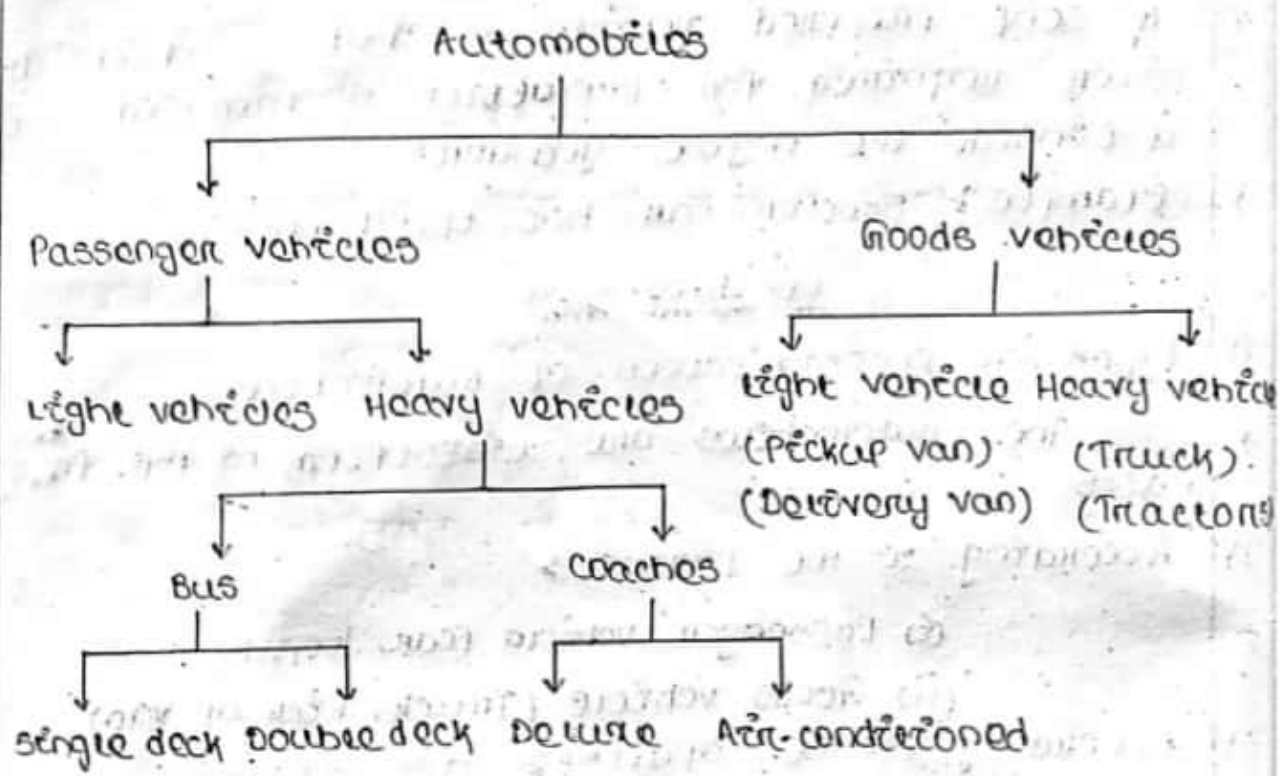 Automobiles
Passenger vehicles Goods vehicles
Light vehicles Heavy vehicles Light vehicle Heavy vehicle
(Pickup van) (Truck).
(Delivery van) (Tractors)
Bus Coaches
Single deck Double deck Deluxe Air-conditioned